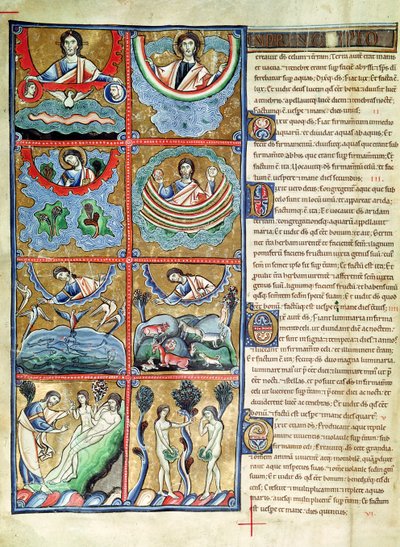 PRINCIPIO
creavit ds celum & terram. Terra aut erat
inanis & vacua & tenebre erant sup faciem abyssi & sps di
ferebatur sup aquas. Dixq; ds. Fiat lux. Et facta e
lux. Et vidit ds lucem qd e& bona & divisit lucem ac
tenebras, appellavitq; lucem diem & tenebras nocte.
Factumq; e vespe & mane dies unus. II
Dixit quoq; ds. Fiat firmamentum in medio
aquarum & dividat aquas ab aquis. Et
fecit ds firmamentum, divisitq; aquas que erant sub
firmamento ab his que erant sup firmamentum. Et
factum e ita. Vocavitq; ds firmamentum celum. & factu
e vespe & mane dies secundus. III
Dixit vero ds. Congregentur aque que sub
celo sunt in locum unu & appareat arida.
Factumq; e ita. Et vocavit ds aridam
terram, congregationesq; aquaru appellavit
maria. Et vidit ds qd e& bonum & ait. Ger
minet terra herbam virentem & facientem semen & lignum
pomiferu faciens fructum iuxta genus suu, cui
semen in semetipso sit sup terram. Et factu e ita. Et
protulit terra herbam virentem & afferentem semen
iuxta genus suu, lignumq; faciens fructu & habens unu
qdq; sementem scdm speciem suam. Et vidit ds quod
e& bonu. Factumq; e vespe & mane dies tercius. IIII
Dixit aut ds. Fiant luminaria in firma
mento celi ut dividant diem ac noctem.
& sint in signa & tempora & dies & annos,
ut luceant in firmamento celi & illuminent terram.
Et factum e ita. Fecitq; ds duo magna luminaria,
luminare maius ut pesset diei & luminare min
ut pesset nocti & stellas. et posuit eas in firmamto
celi ut lucerent sup terram & pessent diei ac nocti &
dividerent lucem ac tenebras. Et vidit ds qd e&
bonu. & factu e vespe & mane dies quartus. V
Dixit etiam ds. Producant aque reptile
anime viventis & volatile sup terram
sub firmamento celi. Creavitq; ds cete grandia &
omnem animā viventem atq; motabilem quā pduxer
ant aque in species suas & omne volatile scdm genus
suum. Et vidit ds qd e& bonum. benedixitq; eis di
cens. Crescite & multiplicamini & replete aquas
maris. avesq; multiplicentur sup terram. & factum
e vespe & mane dies quintus. VI